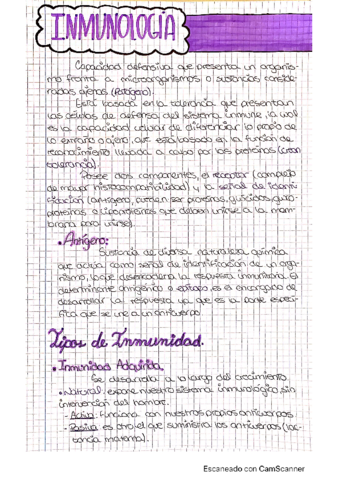 INMUNOLOGÍA
Capacidad defensiva que presenta un organis-
mo frente a microorganismos o sustancias conside-
radas ajenas (Patógeno).
Está basada en la tolerancia que presentan
las células de defensa del sistema inmune, la cual
es la capacidad celular de diferenciar lo propio de
lo extraño o ajeno, que está basada en la función de
reconocimiento llevada a cabo por las proteínas
tolerancia).
Posee dos componentes, el receptor (complejo
de mayor histocompatibilidad) y la señal de identi-
ficación (antígeno, pueden ser proteínas, glúcidos,
proteínas o lipoproteínas que deben unirse a la mem-
brana para unirse).
• Antígeno:
Sustancia de diversa naturaleza química
que actúa como señal de identificación de un orga-
nismo, la que desencadena la respuesta inmunitaria. El
determinante antigénico o epítopo es el encargado de
desarrollar la respuesta ya que es la parte especí-
fica que se une a un anticuerpo.
Tipos de Inmunidad.
• Inmunidad Adquirida.
Se desarrolla a lo largo del crecimiento.
• Natural: expone nuestro sistema inmunológico sin
intervención del hombre.
- Activa: Funciona con nuestros propios anticuerpos.
- Pasiva: es otro el que suministra los anticuerpos (lac-
tancia materna).
Escaneado con CamScanner